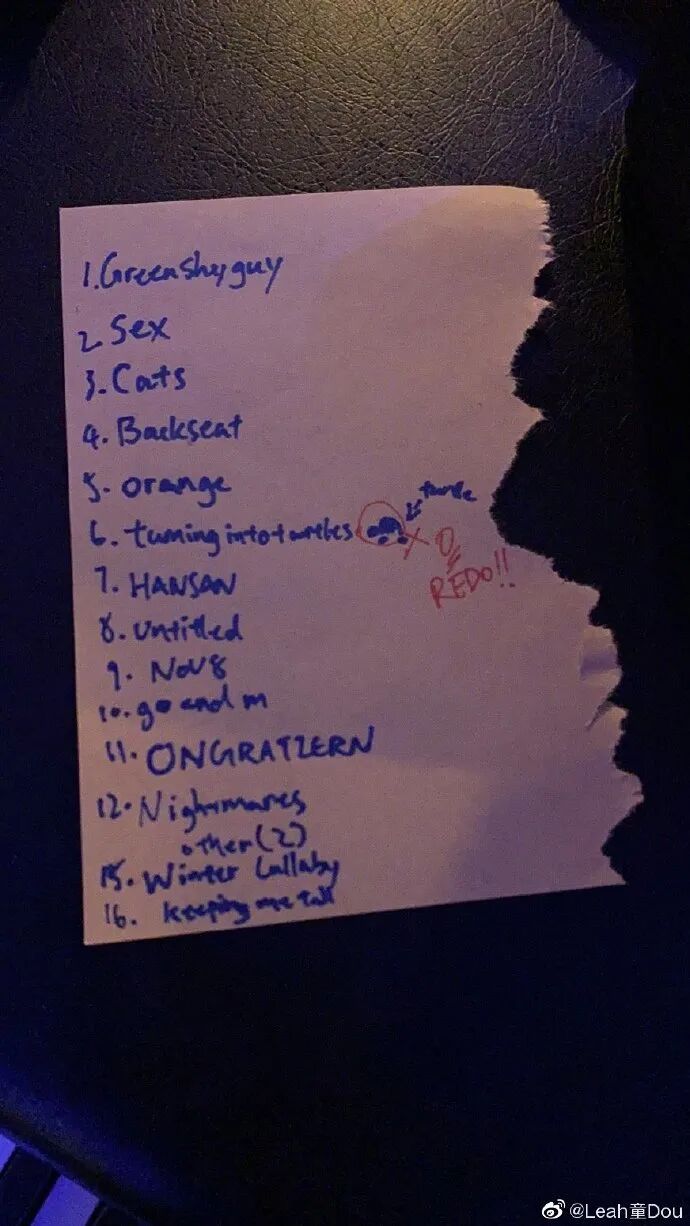 1. Greenshyguy
2. Sex
3. Cats
4. Backseat
5. orange
turtle
6. turning into turtles X
REDO!!
7. HANSAN
8. untitled
9. Nov 8
10. go and m
11. ONGRATZERN
12. Nightmares
other (2)
15. Winter Lullaby
16. keeping me tall
@Leah童Dou